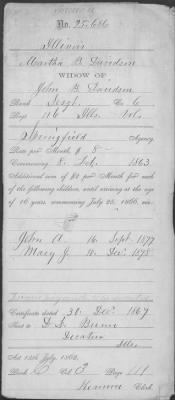 No. 25,686
Illinois
Martha B. Davidson
WIDOW OF
John B. Davidson
Rank Sergt. Co. C
Regt 116 Ills. Vol.
Springfield Agency
Rate per Month, $ 8
Commencing 8. Oct. 1863
Additional sum of $2 per Month for each
of the following children, until arriving at the age
of 16 years, commencing July 25, 1866, viz:
John A. 16. Sept. 1877
Mary J. 11. Dec. 1878
Certificate dated 30. Dec. 1867
Sent to
Decatur
Ills
Act 14th July, 1862.
Book C Vol. 3 Page 111
Clerk.